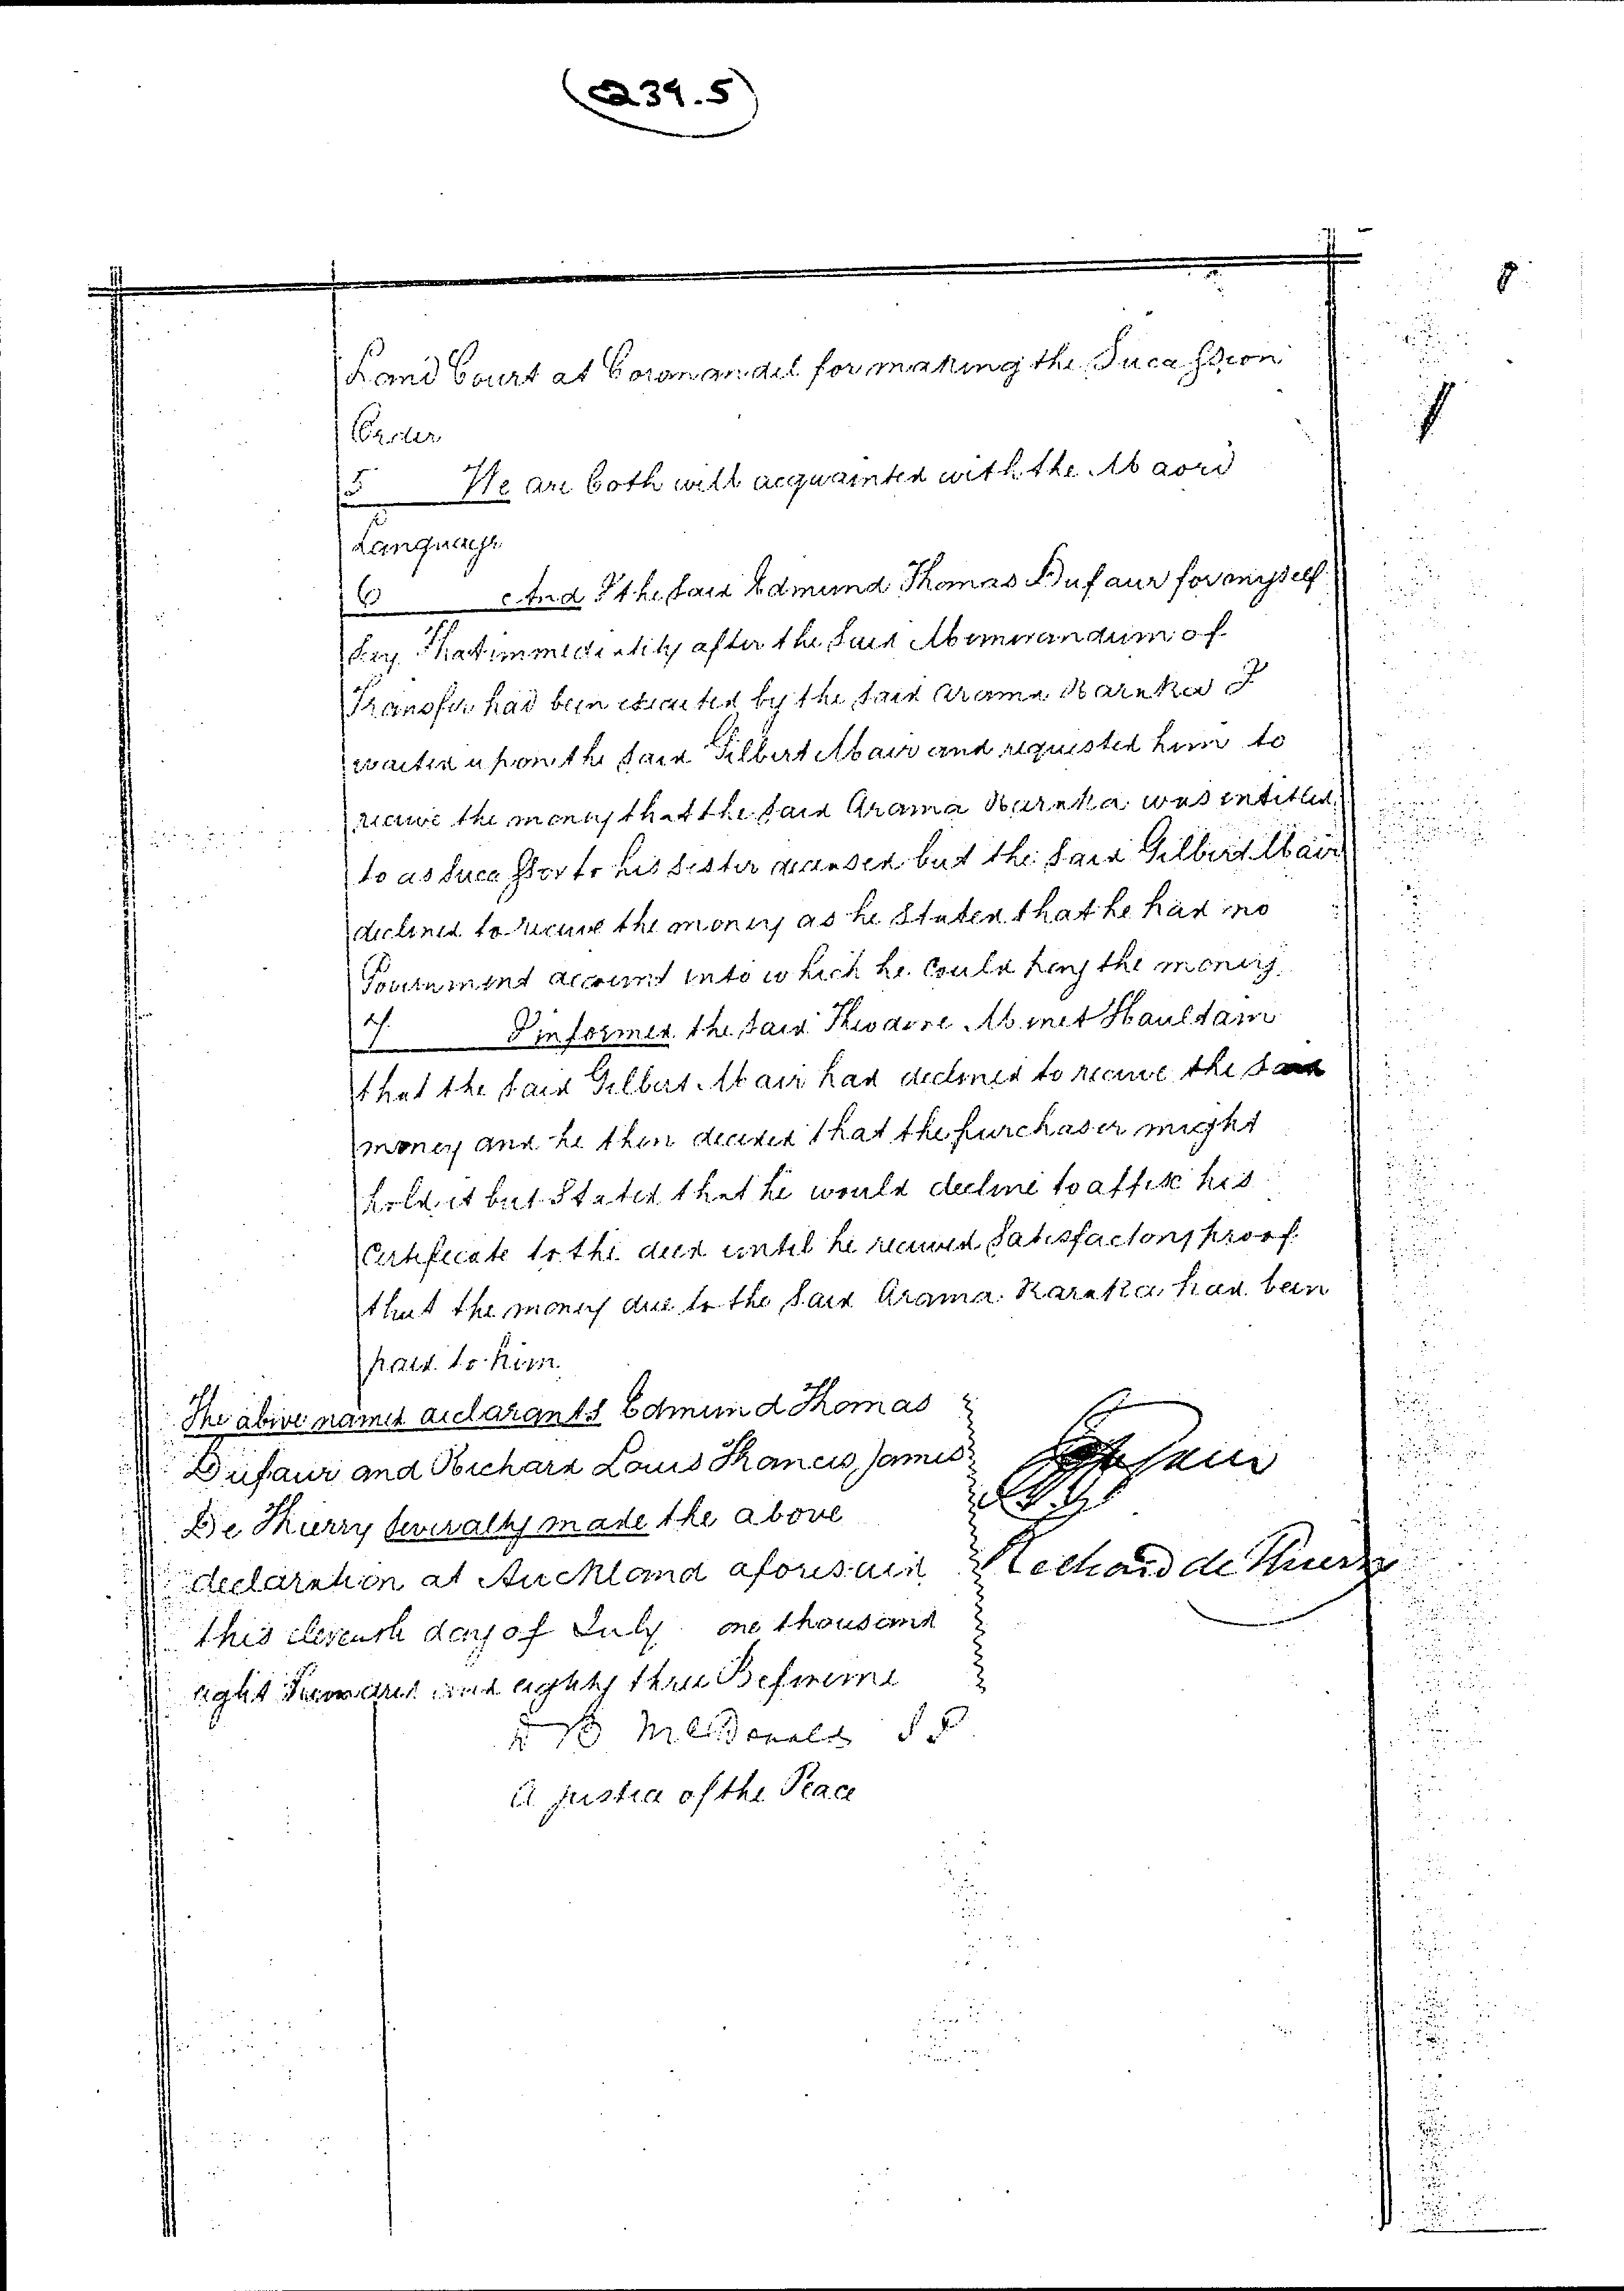 239.5
Land Court at Coromandel for making the Sucession
Order
5 We are both well acquainted with the Maori
Language
6 And I the said Edmund Thomas Dufaur for myself
say That immediately after the said Memorandum of
Transfer had been executed by the said Arama Karaka I
waited upon the said Gilbert Mair and requested him to
receive the money that the said Arama Karaka was entitled
to as Sucessor to his sister deceased but the said Gilbert Mair
declined to receive the money as he stated that he had no
Government account into which he could pay the money
7. I informed the said Theodore Minet Haultain
that the said Gilbert Mair had declined to receive the said
money and he then decided that the purchaser might
hold it but Stated that he would decline to affix his
Certificate to the deed until he received Satisfactory proof
that the money due to the said Arama Karaka had been
paid to him
The above named declarants Edmund Thomas
Dufaur and Richard Louis Francis James
De Thierry severally made the above
declaration at Auckland aforesaid
Richard de Thierry
this eleventh day of July one thousand
eight hundred and eighty three Before me
B McDonald J P
A Justice of the Peace